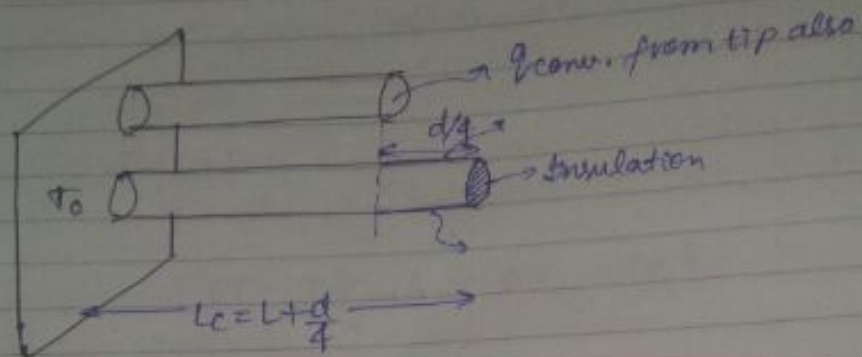 qconv. from tip also
d/4
Insulation
To
Lc = L + d/4